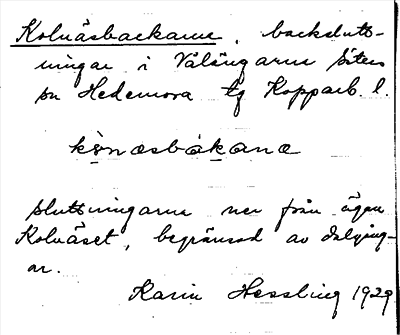 Kolnäsbackarne, backslutt-
ningar i Välängarne Säters
sn Hedemora tg Kopparb. l.
kònæsbákanæ
sluttningarne ner från ägan
Kolnäset, begränsad av dalgång-
ar.
Karin Hessling 1929